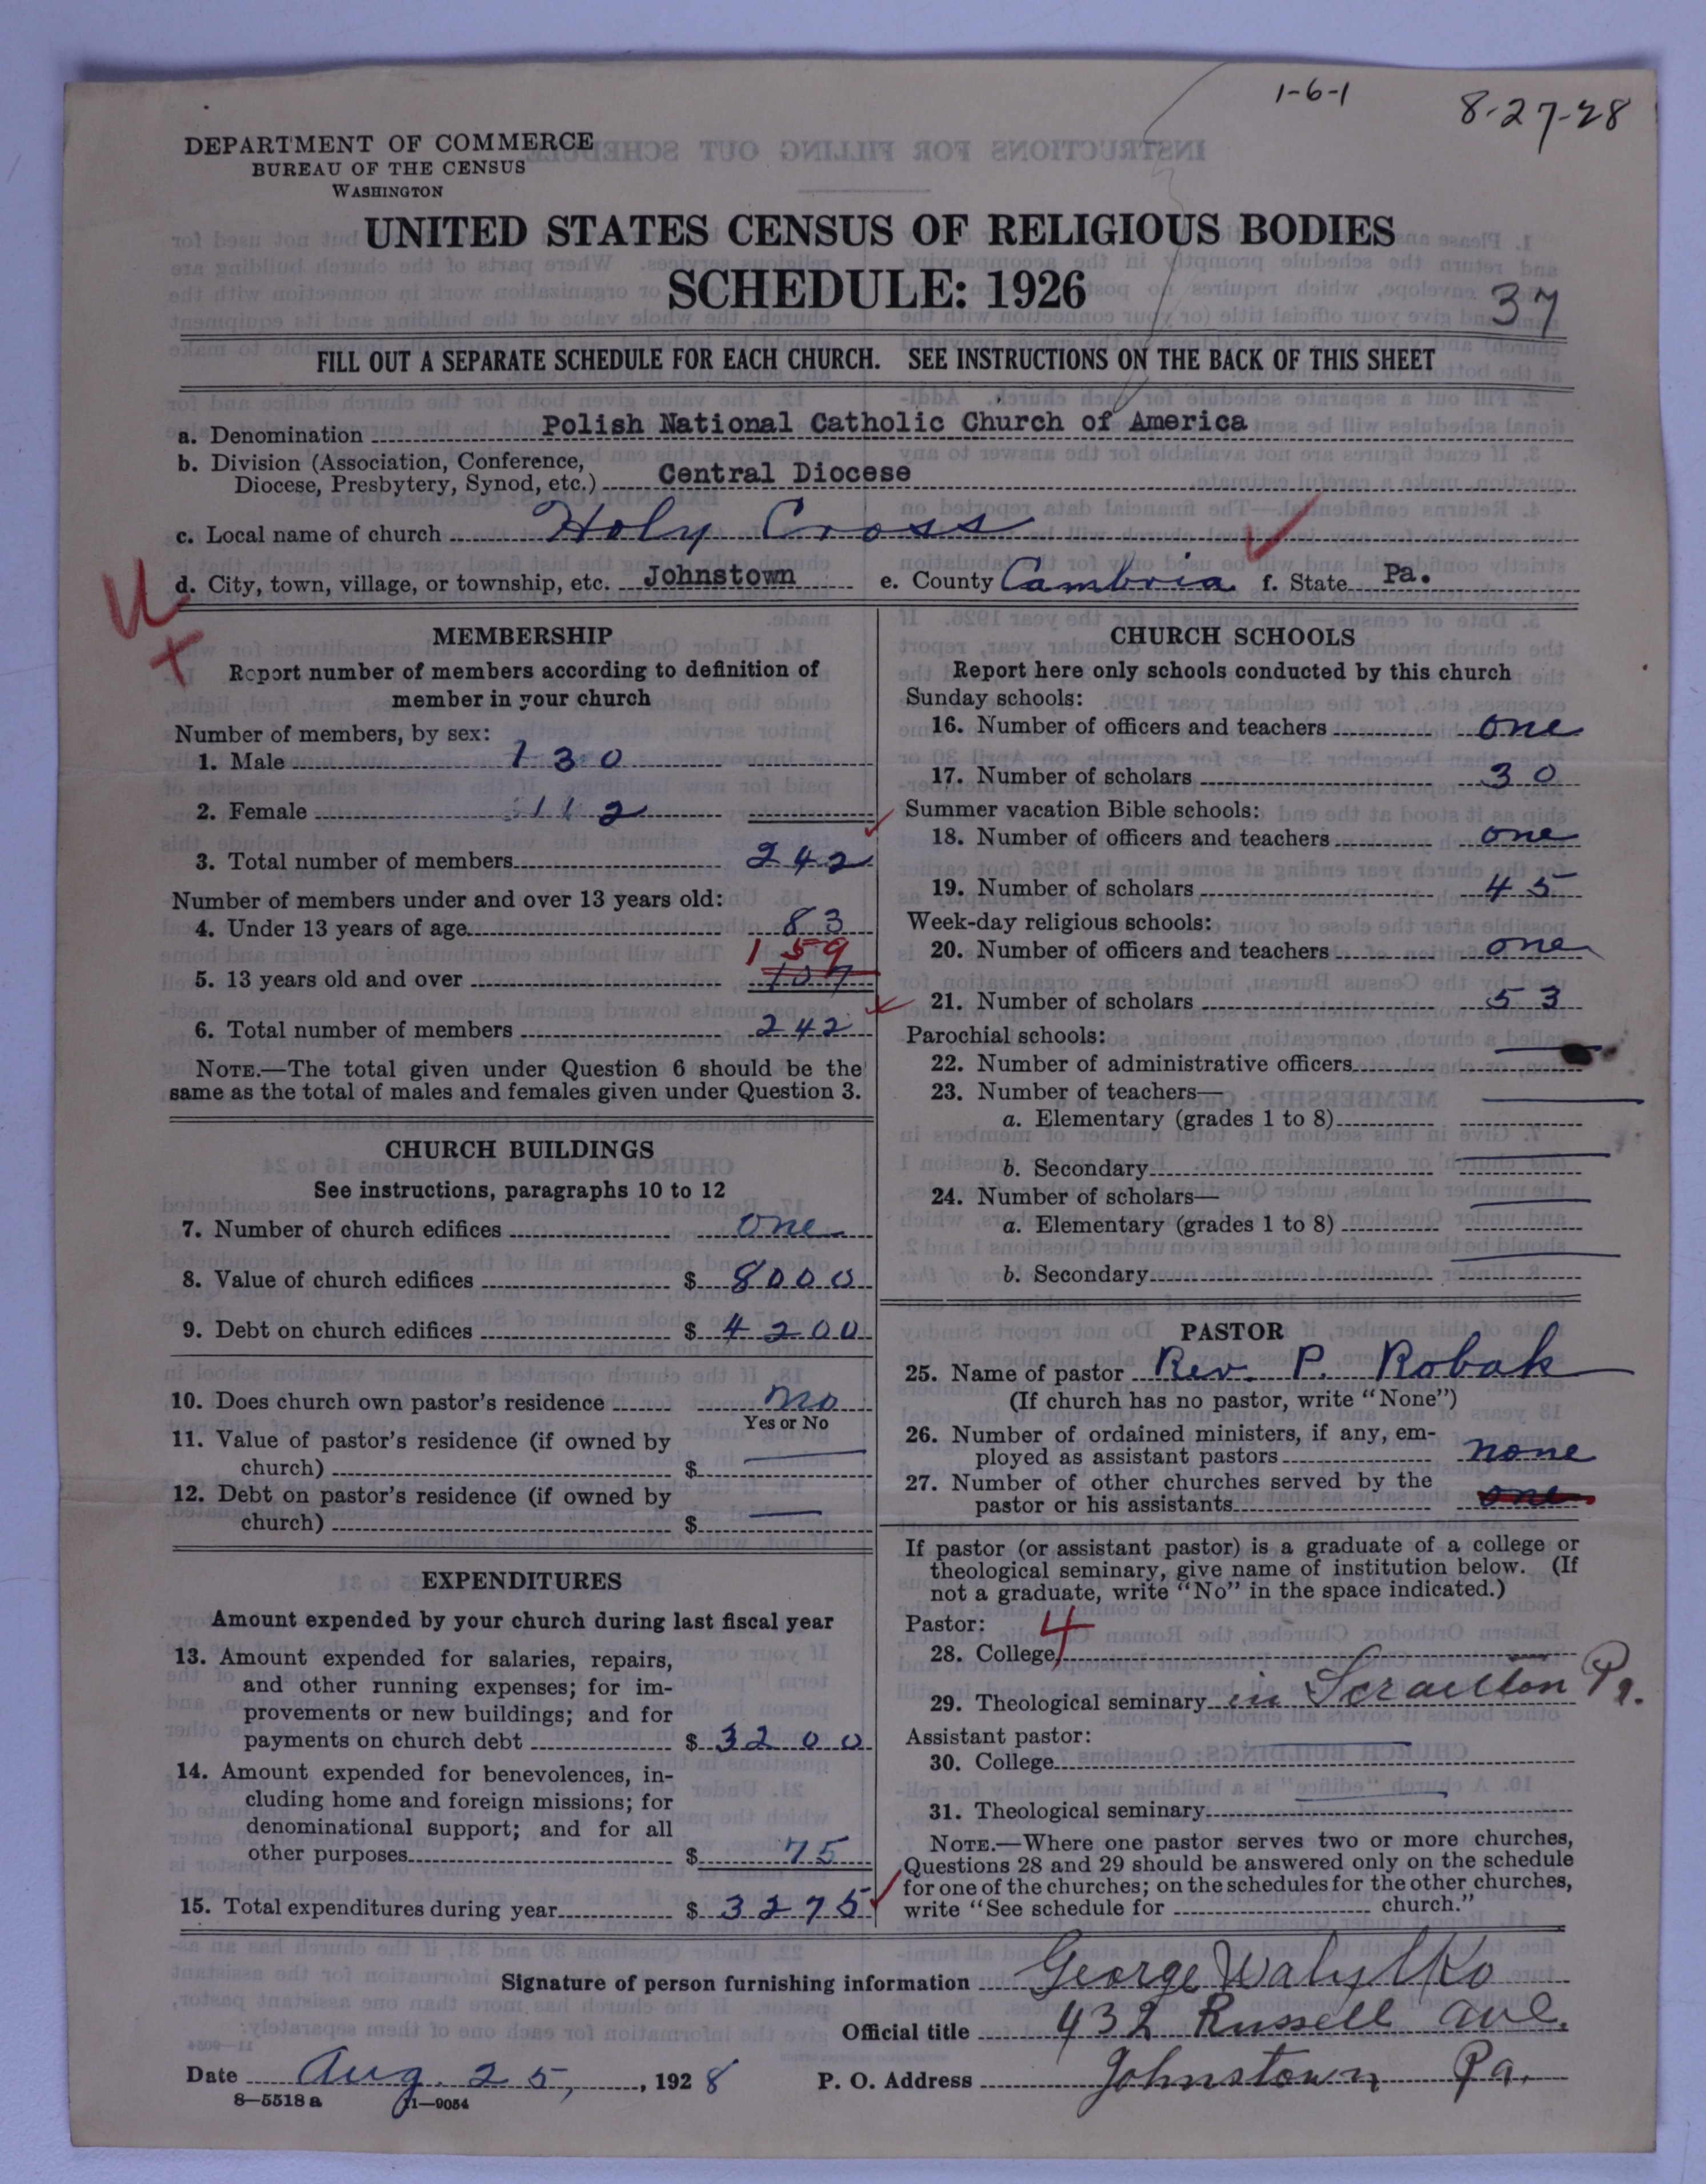 1-6-1
8-27-28
DEPARTMENT OF COMMERCE
BUREAU OF THE CENSUS
WASHINGTON
UNITED STATES CENSUS OF RELIGIOUS BODIES
SCHEDULE: 1926
37
FILL OUT A SEPARATE SCHEDULE FOR EACH CHURCH. SEE INSTRUCTIONS ON THE BACK OF THIS SHEET
a. Denomination Polish National Catholic Church of America
b. Division (Association, Conference,
Diocese, Presbytery, Synod, etc.) Central Diocese
c. Local name of church Holy Cross
d. City, town, village, or township, etc. Johnstown e. County Cambria f. State Pa.
MEMBERSHIP
Report number of members according to definition of
member in your church
Number of members, by sex:
1. Male 130
2. Female 112
3. Total number of members 242
Number of members under and over 13 years old:
4. Under 13 years of age 83
159
5. 13 years old and over
6. Total number of members 242
NOTE.—The total given under Question 6 should be the
same as the total of males and females given under Question 3.
CHURCH BUILDINGS
See instructions, paragraphs 10 to 12
7. Number of church edifices one
8. Value of church edifices $ 8000
9. Debt on church edifices $ 4200
10. Does church own pastor's residence no
Yes or No
11. Value of pastor's residence (if owned by
church) $ —
12. Debt on pastor's residence (if owned by
church) $ —
EXPENDITURES
Amount expended by your church during last fiscal year
13. Amount expended for salaries, repairs,
and other running expenses; for im-
provements or new buildings; and for
payments on church debt $ 3200
14. Amount expended for benevolences, in-
cluding home and foreign missions; for
denominational support; and for all
other purposes $ 75
15. Total expenditures during year $ 3275
CHURCH SCHOOLS
Report here only schools conducted by this church
Sunday schools:
16. Number of officers and teachers one
17. Number of scholars 30
Summer vacation Bible schools:
18. Number of officers and teachers one
19. Number of scholars 45
Week-day religious schools:
20. Number of officers and teachers one
21. Number of scholars 53
Parochial schools:
22. Number of administrative officers —
23. Number of teachers—
a. Elementary (grades 1 to 8) —
b. Secondary —
24. Number of scholars—
a. Elementary (grades 1 to 8) —
b. Secondary —
PASTOR
25. Name of pastor Rev. P. Robak
(If church has no pastor, write "None")
26. Number of ordained ministers, if any, em-
ployed as assistant pastors none
27. Number of other churches served by the
pastor or his assistants one
If pastor (or assistant pastor) is a graduate of a college or
theological seminary, give name of institution below. (If
not a graduate, write "No" in the space indicated.)
Pastor: 4
28. College —
29. Theological seminary in Scranton Pa.
Assistant pastor:
30. College —
31. Theological seminary —
NOTE.—Where one pastor serves two or more churches,
Questions 28 and 29 should be answered only on the schedule
for one of the churches; on the schedules for the other churches,
write "See schedule for church."
Signature of person furnishing information George Walytko
Official title 432 Russell ave.
Date Aug. 25, 1928 P. O. Address Johnstown Pa.
8—5518 a 11—9054